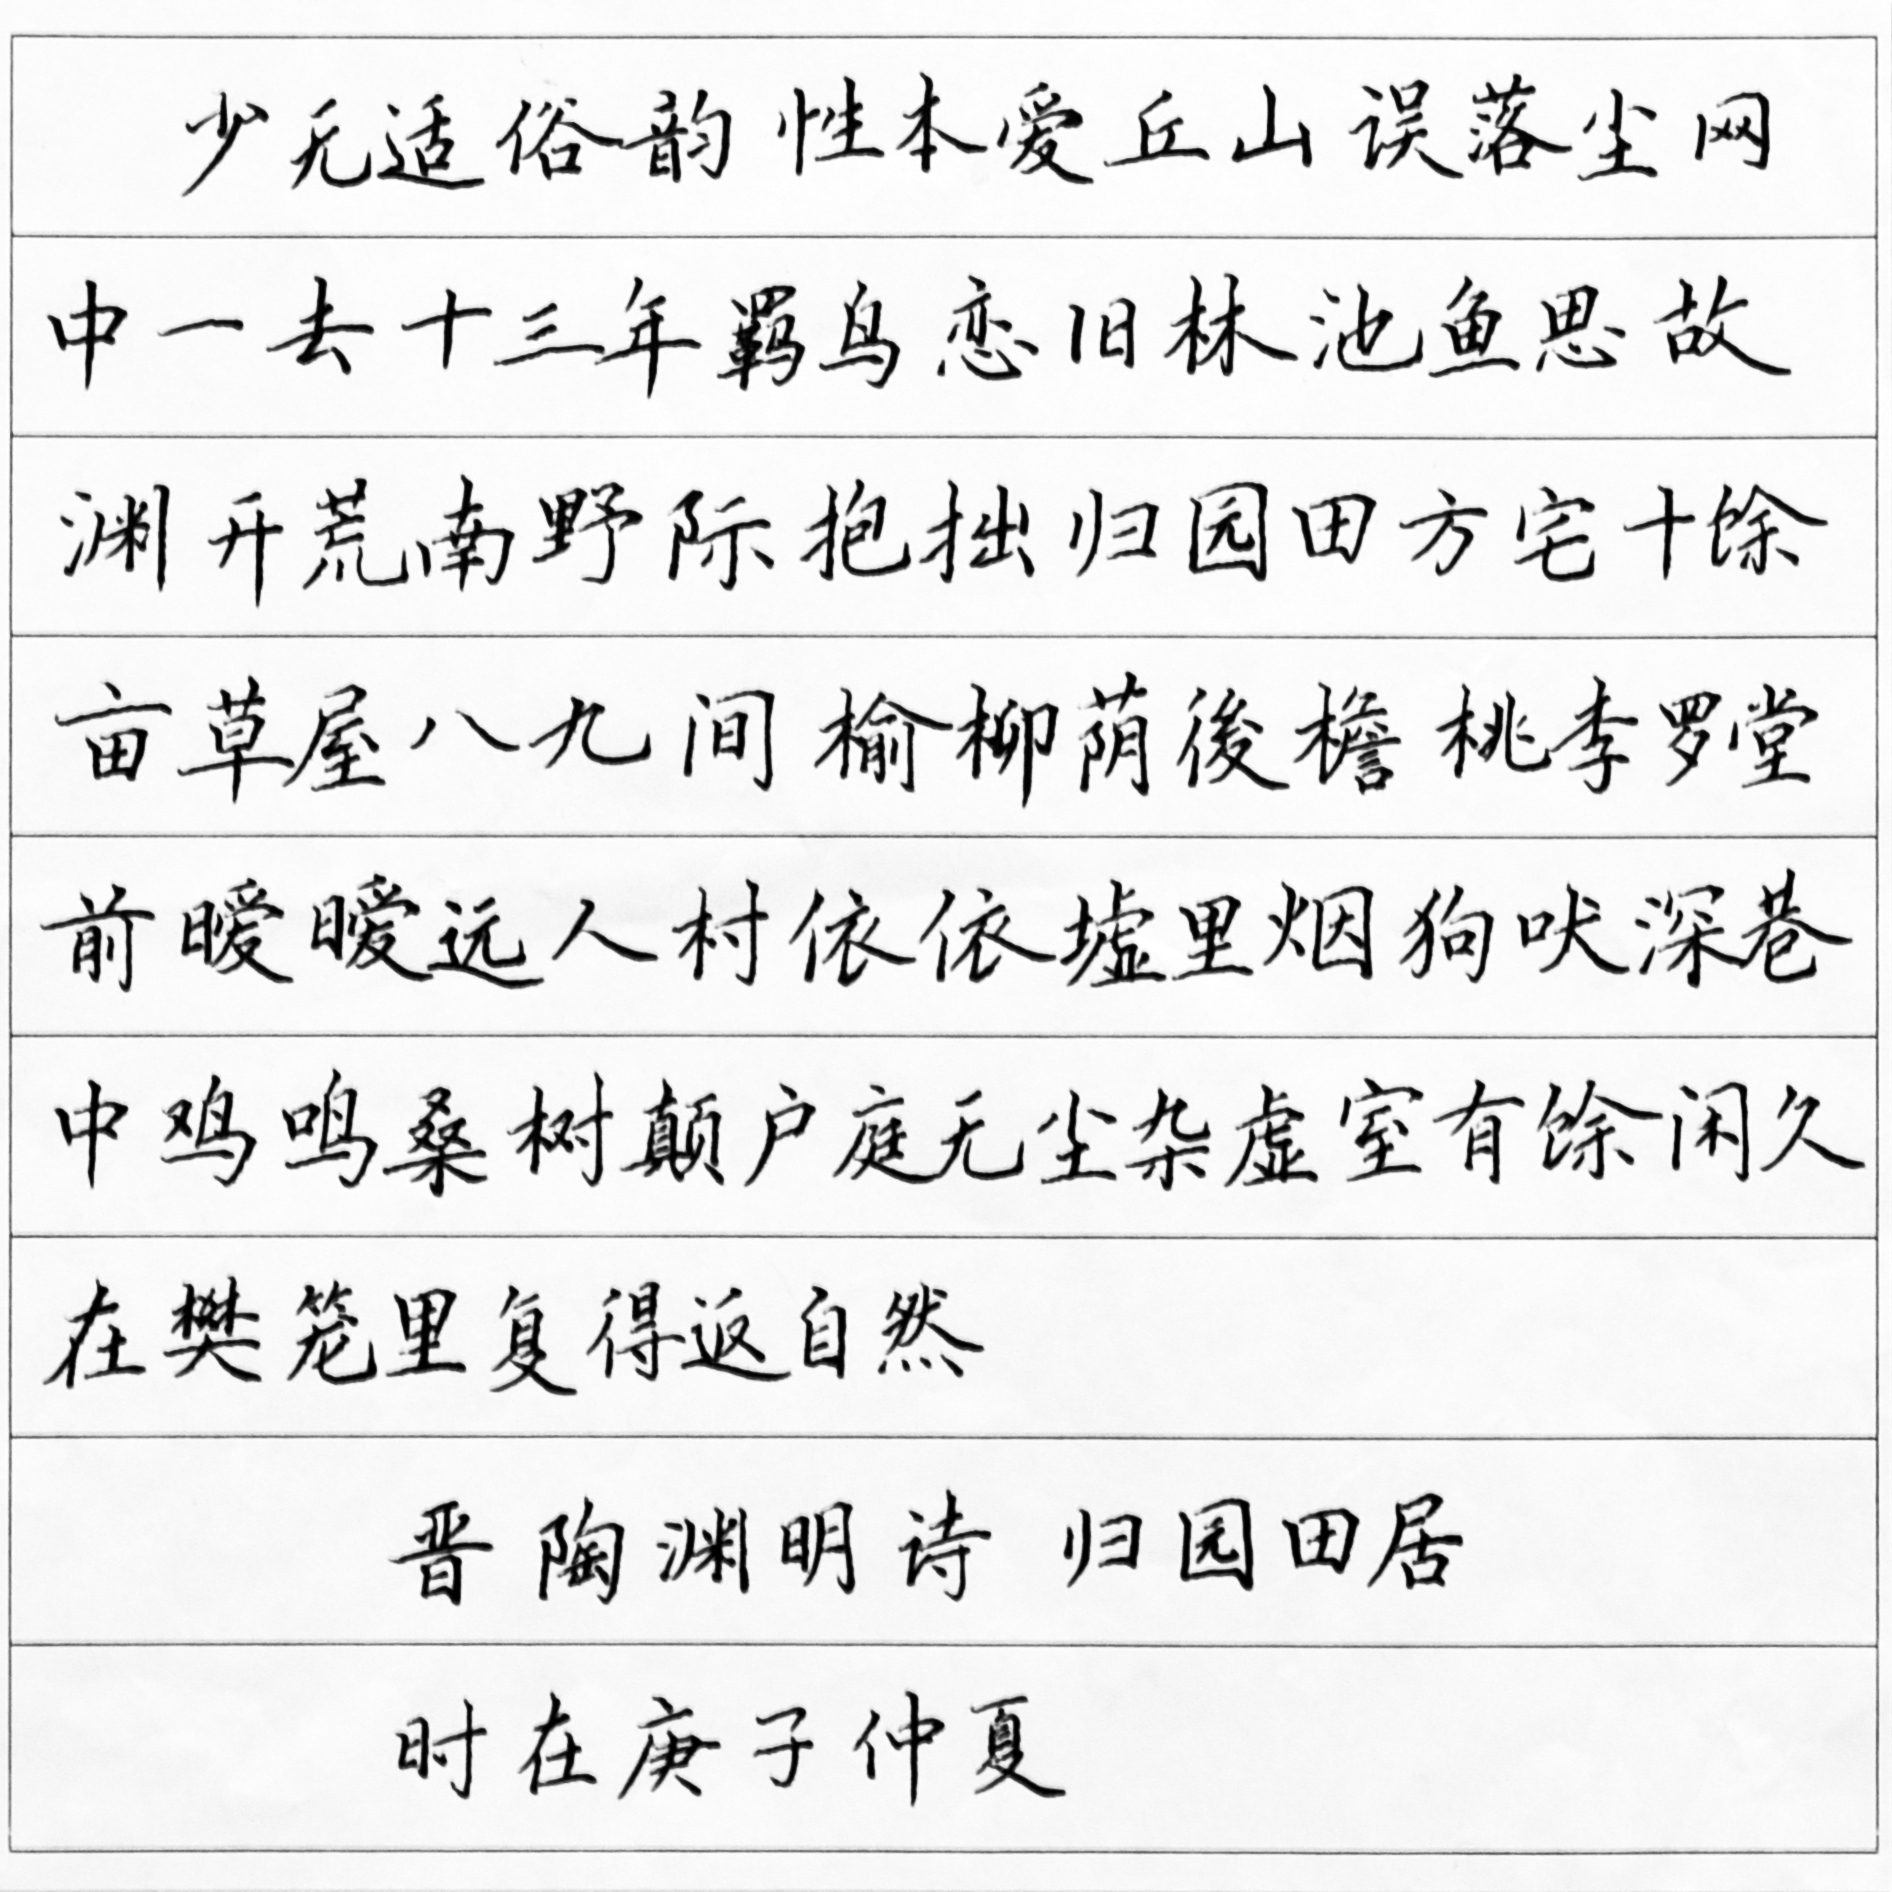 少无适俗韵性本爱丘山误落尘网
中一去十三年羁鸟恋旧林池鱼思故
渊开荒南野际抱拙归园田方宅十馀
亩草屋八九间榆柳荫後檐桃李罗堂
前暧暧远人村依依墟里烟狗吠深巷
中鸡鸣桑树颠户庭无尘杂虚室有馀闲久
在樊笼里复得返自然
晋陶渊明诗 归园田居
时在庚子仲夏